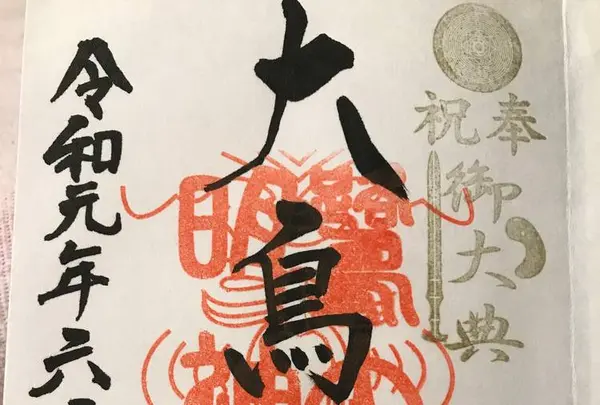 奉祝
御大典
大鳥
明
令和元年六